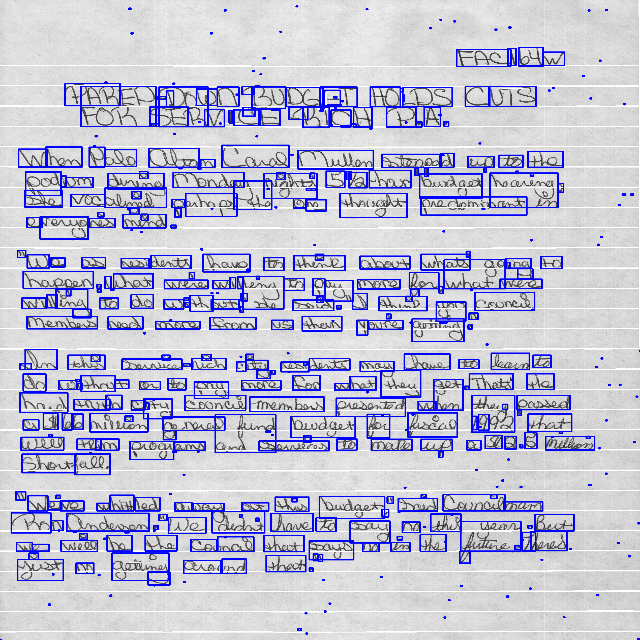 PARED-DOWN BUDGET HOLDS CUTS
FOR SERVICE-RICH P.A.
When Palo Altan Carol Mullen stepped up to the
podium during Monday night's 5½ hour budget hearing
she vocalized perhaps the one thought predominant in
everyone's mind
We as residents have to think about what's going to
happen, what we're willing to pay more for, what we're
willing to do without she said. I think you council
members need more from us than you're getting
In this service-rich city residents may have to learn to
do without or to pay more for what they get. That's the
hard truth city council members presented when they passed
a million general fund budget for fiscal 1992 that
will trim programs and services to make up a $2.5 million
shortfall.
We've whittled away at this budget, said Councilman
Ron Anderson. We didn't have to say no this year. But
we will be the council that says no in the future. There's
just no getting around that.